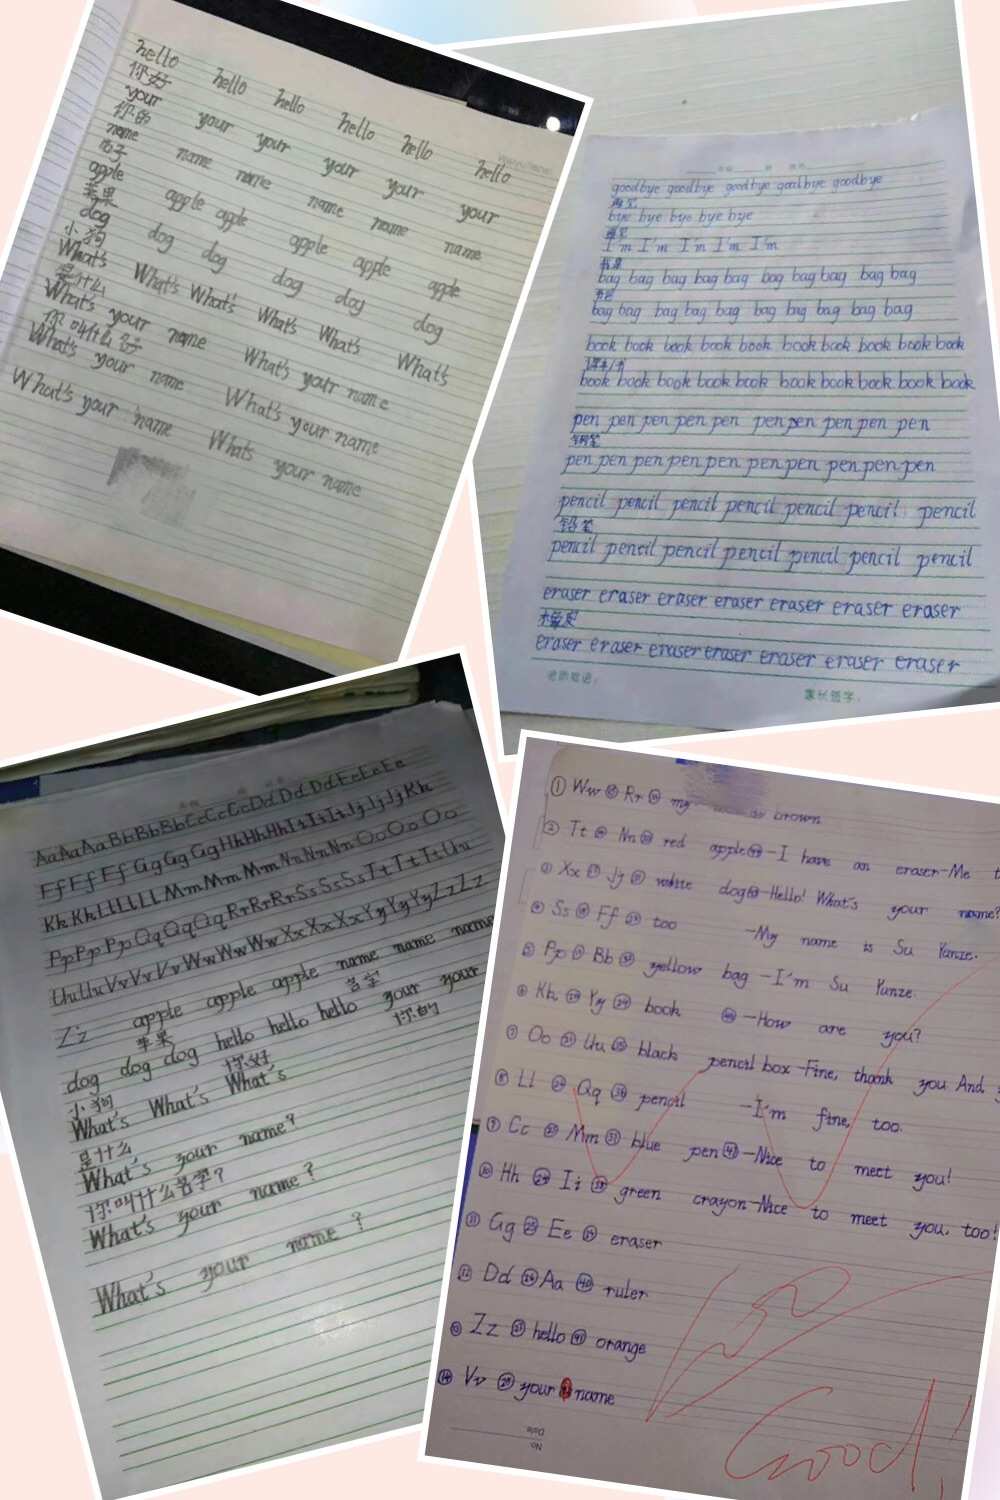 hello hello hello hello hello hello
你好
your your your your your your
你的
name name name name name name
名字
apple apple apple apple apple apple
苹果
dog dog dog dog dog dog
小狗
What's What's What's What's What's What's
是什么
What's your name What's your name
你叫什么名字
What's your name What's your name
What's your name Whats your name
goodbye goodbye goodbye goodbye goodbye
再见
bye bye bye bye bye
再见
I'm I'm I'm I'm I'm
我是
bag bag bag bag bag bag bag bag bag bag
书包
bag bag bag bag bag bag bag bag bag bag
book book book book book book book book book book
课本/书
book book book book book book book book book book
pen pen pen pen pen pen pen pen pen pen
钢笔
pen pen pen pen pen pen pen pen pen pen
pencil pencil pencil pencil pencil pencil pencil
铅笔
pencil pencil pencil pencil pencil pencil pencil
eraser eraser eraser eraser eraser eraser eraser
橡皮
eraser eraser eraser eraser eraser eraser eraser
老师寄语：
家长签字：
AaAaAaBbBbBbCcCcCcDdDdDdEeEeEe
FfFfFfGgGgGgHhHhHhIiIiIiJjJjJjKk
KkKkLlLlLlMmMmMmNnNnNnOoOoOo
PpPpPpQqQqQqRrRrRrSsSsSsTtTtTtUu
UuUuVvVvVvWwWwWwXxXxXxYyYyYyZzZz
Zz apple apple apple name name name
苹果 名字
dog dog dog hello hello hello your your
小狗 你好 你的
What's What's What's
是什么
What's your name?
你叫什么名字?
What's your name?
What's your name?
① Ww ⑮ Rr ㉙ my brown
② Tt ⑯ Nn ㉚ red apple ㊹ -I have an eraser-Me
③ Xx ⑰ Jj ㉛ white dog ㊺ -Hello! What's your name?
④ Ss ⑱ Ff ㉜ too -My name is Su Yunze.
⑤ Pp ⑲ Bb ㉝ yellow bag -I'm Su Yunze.
⑥ Kk ⑳ Yy ㉞ book ㊻ -How are you?
⑦ Oo ㉑ Uu ㉟ black pencil box -Fine, thank you And
⑧ Ll ㉒ Qq ㊱ pencil -I'm fine, too.
⑨ Cc ㉓ Mm ㊲ blue pen ㊼ -Nice to meet you!
⑩ Hh ㉔ Ii ㊳ green crayon -Nice to meet you, too!
⑪ Gg ㉕ Ee ㊴ eraser
⑫ Dd ㉖ Aa ㊵ ruler
⑬ Zz ㉗ hello ㊶ orange
⑭ Vv ㉘ your name
Good!
No.
Date